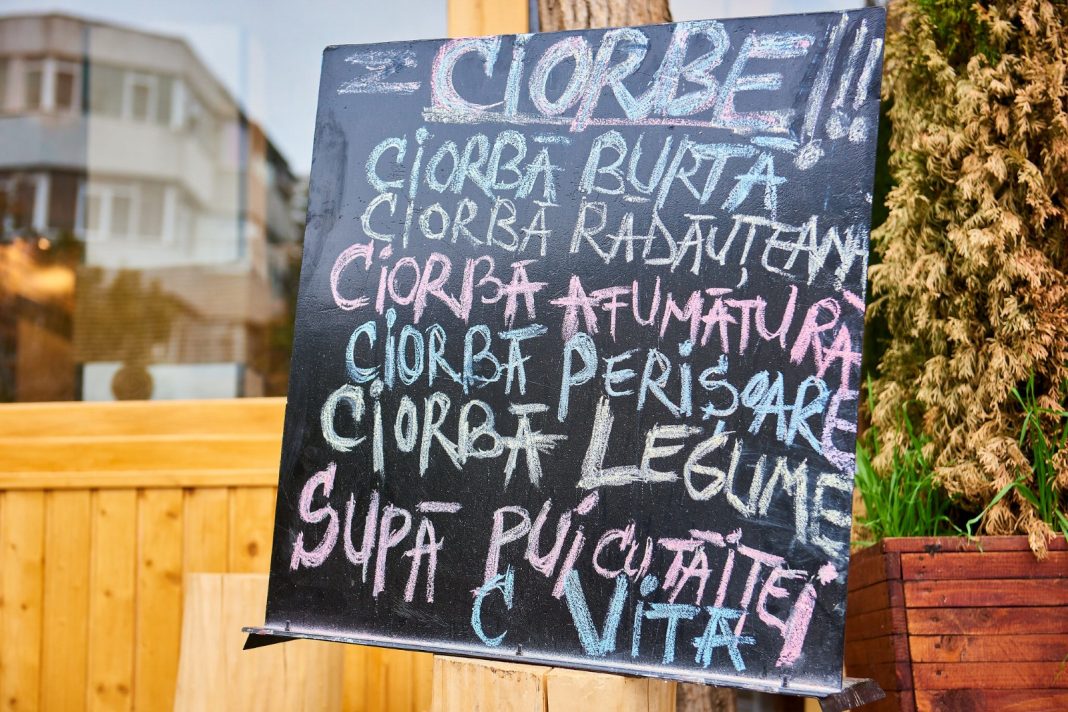 CIORBE!!!
CIORBĂ BURTĂ
CIORBĂ RĂDĂUȚEANĂ
CIORBĂ AFUMĂTURĂ
CIORBĂ PERIȘOARE
CIORBĂ LEGUME
SUPĂ PUI CU TĂIȚEI
C VITĂ